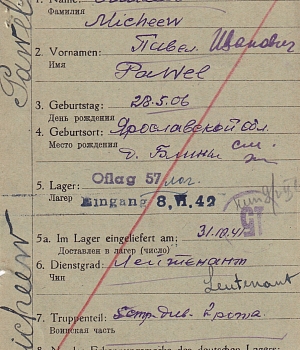 Фамилия
Micheew
2. Vornamen: Павел Иванович
Имя
Pawel
3. Geburtstag: 28.5.06
День рождения
4. Geburtsort: Ярославской обл.
Место рождения
5. Lager: Oflag 57
Лагерь
Eingang 8. VI. 42
5a. Im Lager eingeliefert am: 31.10.41
Доставлен в лагерь (число)
6. Dienstgrad: Лейтенант
Чин
Leutenant
7. Truppenteil:
Воинская часть
Pawel
Micheew